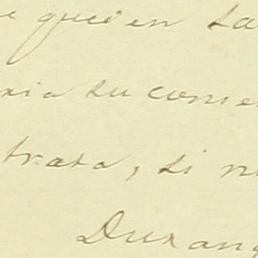 que en la
su come
trata, si n
Durang